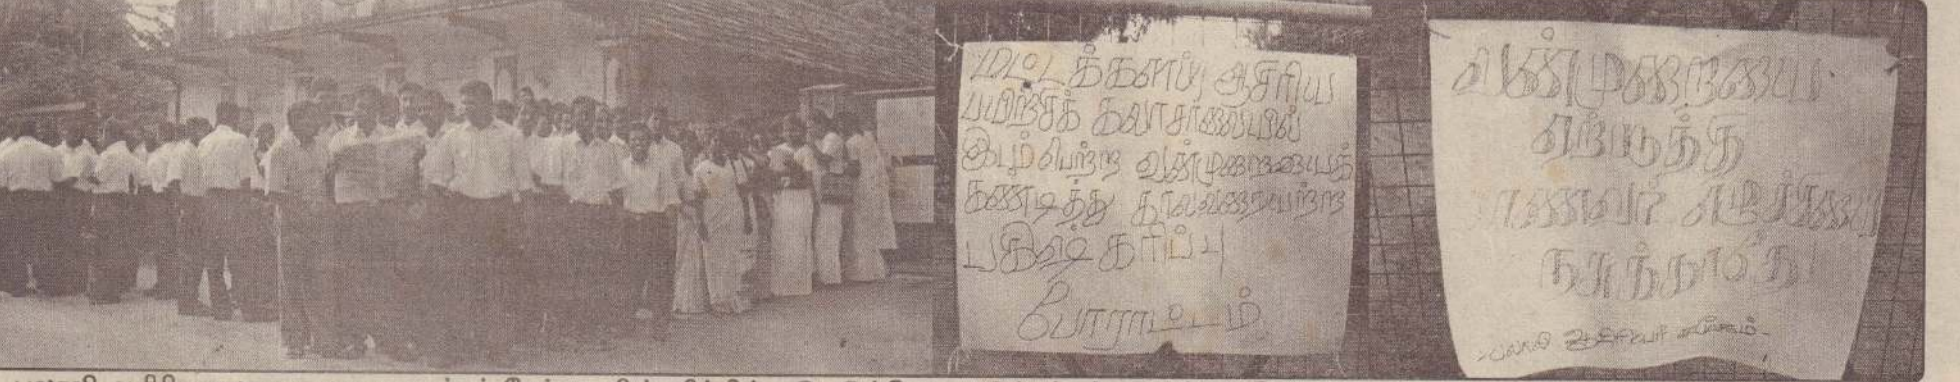 மட்டக்களப்பு ஆசிரிய
பயிற்சிக் கலாசாலையில்
இடம்பெற்ற வன்முறையைக்
கண்டித்து காலவரையற்ற
பகிஷ்கரிப்பு
போராட்டம்
வன்முறையை
ஏற்படுத்தி
மாணவர்
நசுக்காதே
ஆசிரியர்